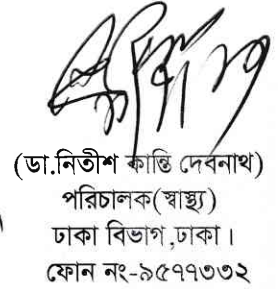 (ডা.নিতীশ কান্তি দেবনাথ)
পরিচালক(স্বাস্থ্য)
ঢাকা বিভাগ,ঢাকা।
ফোন নং-৯৫৭৭৩৩২